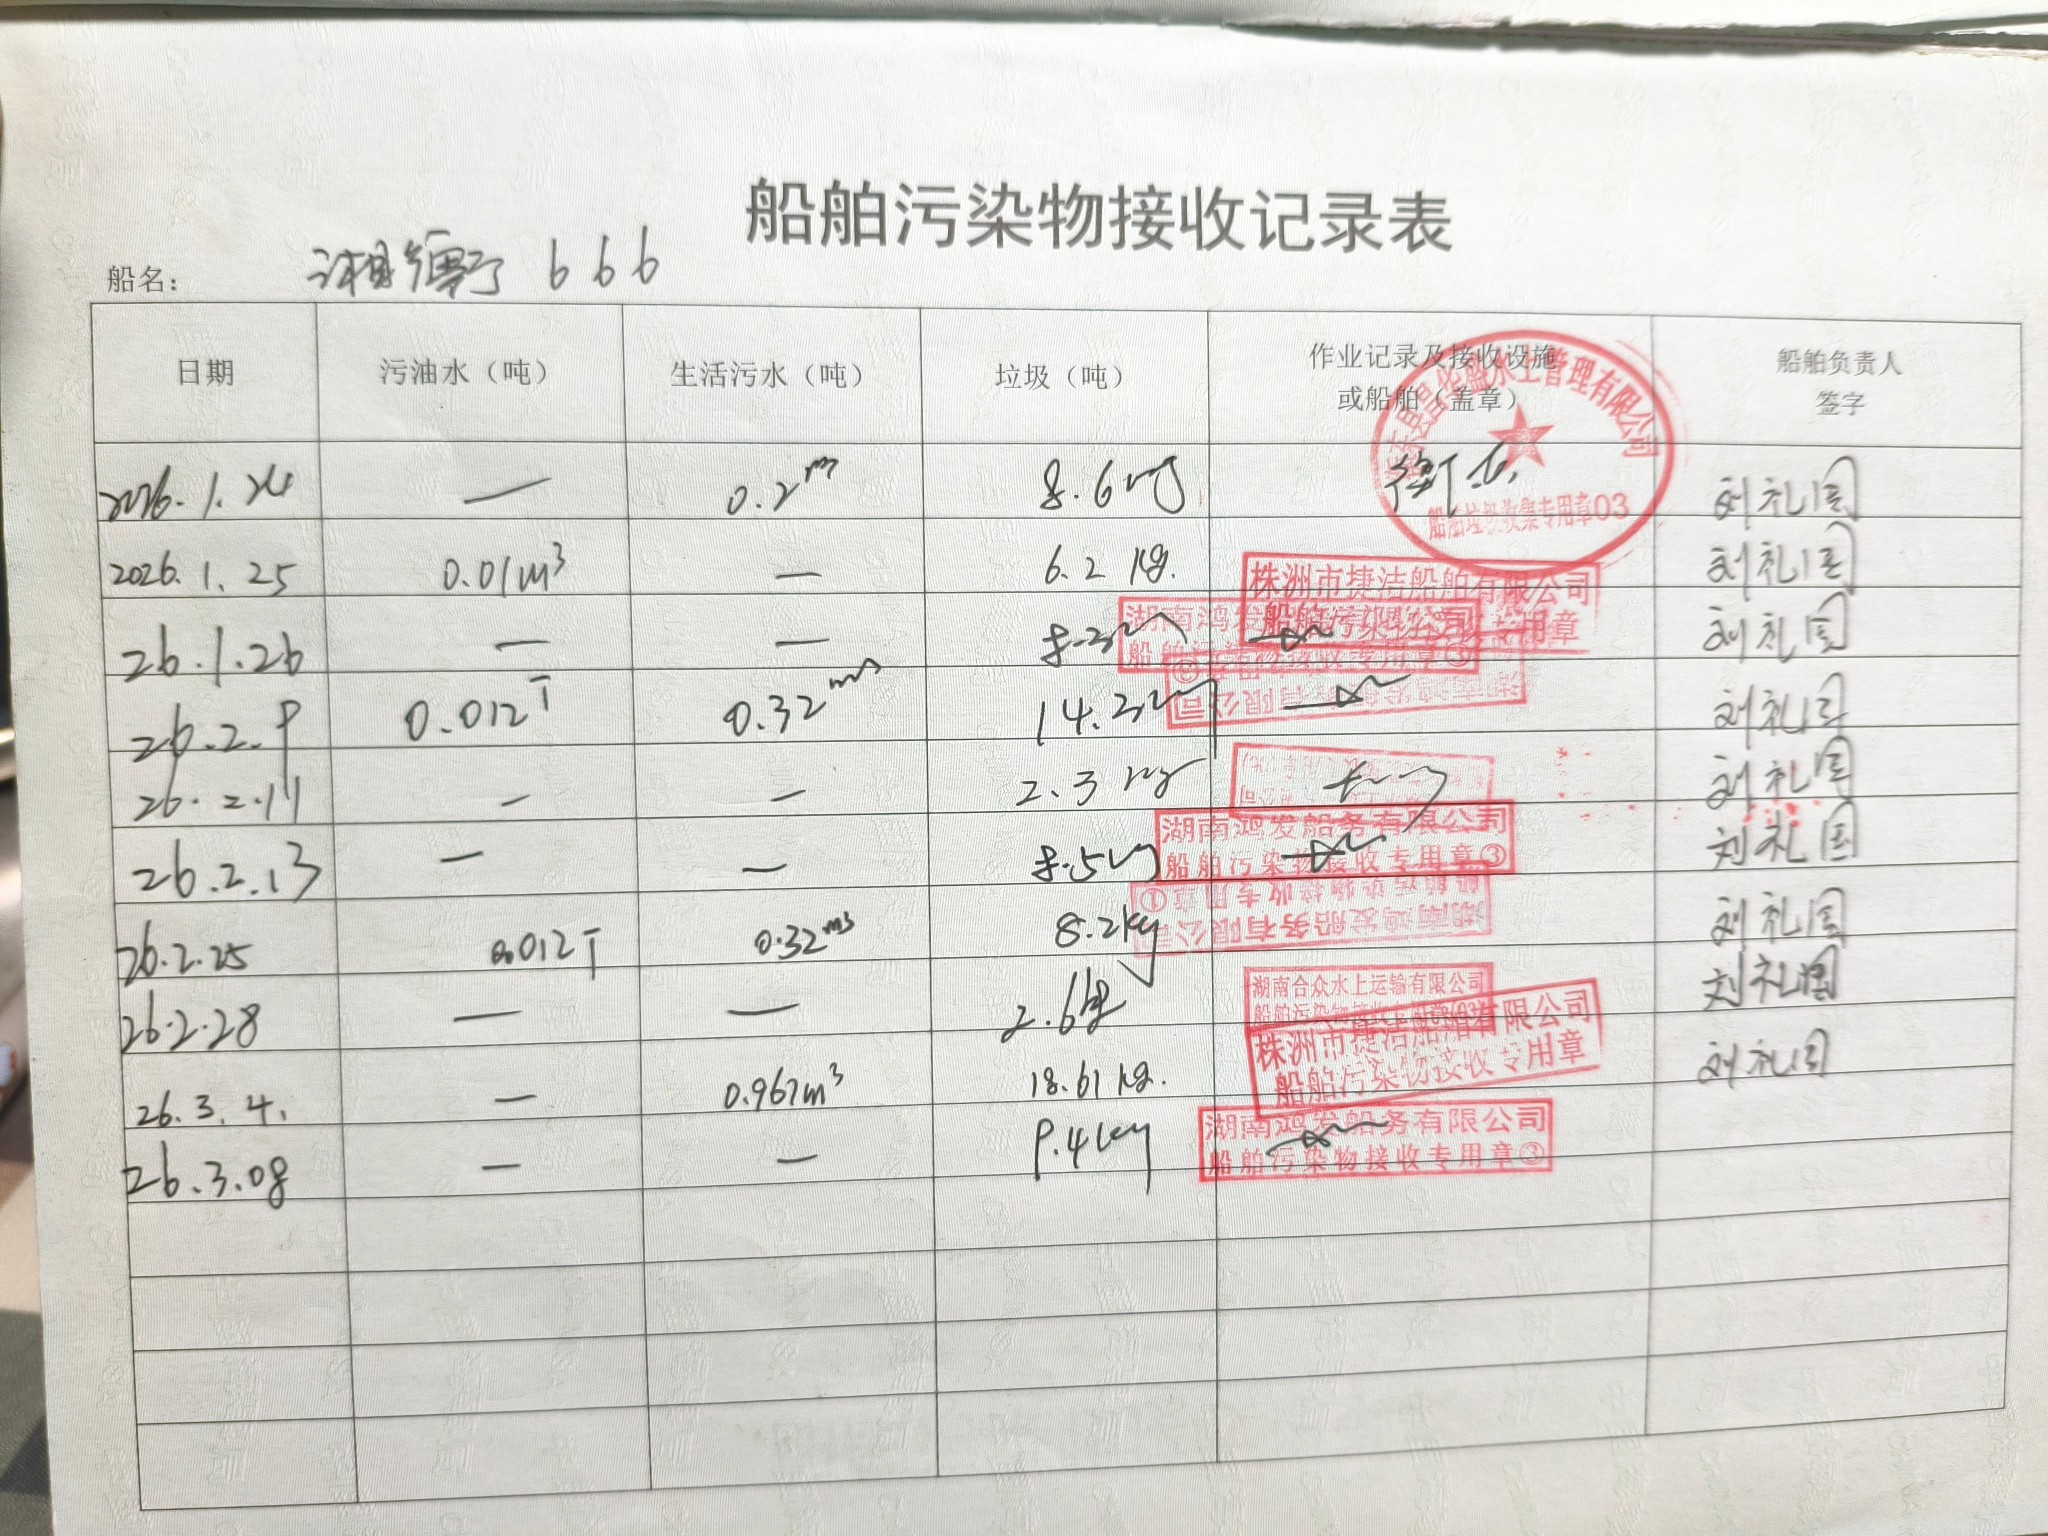 船舶污染物接收记录表
船名： 湘 666
日期 污油水（吨） 生活污水（吨） 垃圾（吨） 作业记录及接收设施或船舶（盖章） 船舶负责人签字
华盛水上管理有限公司
船舶垃圾收集专用章03
2026.1.24 — 0.2m 8.6kg 刘礼国
2026.1.25 0.01m³ — 6.2kg. 株洲市捷洁船舶有限公司 船舶污染物接收专用章 刘礼国
26.1.26 — — 8.3kg 湖南鸿发船务有限公司 船舶污染物接收专用章③ 刘礼国
26.2.9 0.012T 0.32m³ 14.3kg 刘礼国
26.2.11 — — 2.3kg 刘礼国
26.2.13 — — 8.5kg 湖南鸿发船务有限公司 船舶污染物接收专用章③ 刘礼国
26.2.25 0.012T 0.32m³ 8.2kg 湖南鸿发船务有限公司 船舶污染物接收专用章① 刘礼国
26.2.28 — — 2.6kg 湖南合众水上运输有限公司 刘礼国
26.3.4. — 0.967m³ 18.61kg. 株洲市捷洁船舶有限公司 船舶污染物接收专用章 刘礼国
26.3.08 — — 9.4kg 湖南鸿发船务有限公司 船舶污染物接收专用章③